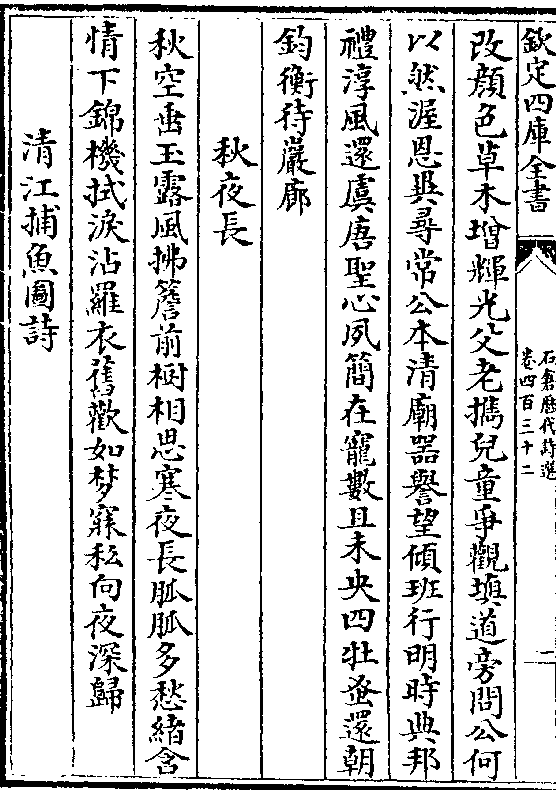 欽定四庫全書
石倉歷代詩選
卷四百三十二
二
改顔色草木增輝光父老擕兒童爭觀填道旁問公何
以然渥恩異尋常公本清廟器譽望傾班行明時典邦
禮淳風還虞唐聖心夙簡在寵數且未央四牡㙯還朝
鈞衡待巖廊
秋夜長
秋空垂玉露風拂簷前樹相思寒夜長脈脈多愁緒含
情下錦機拭淚沾羅衣舊歡如梦寐私向夜深歸
清江捕魚圖詩